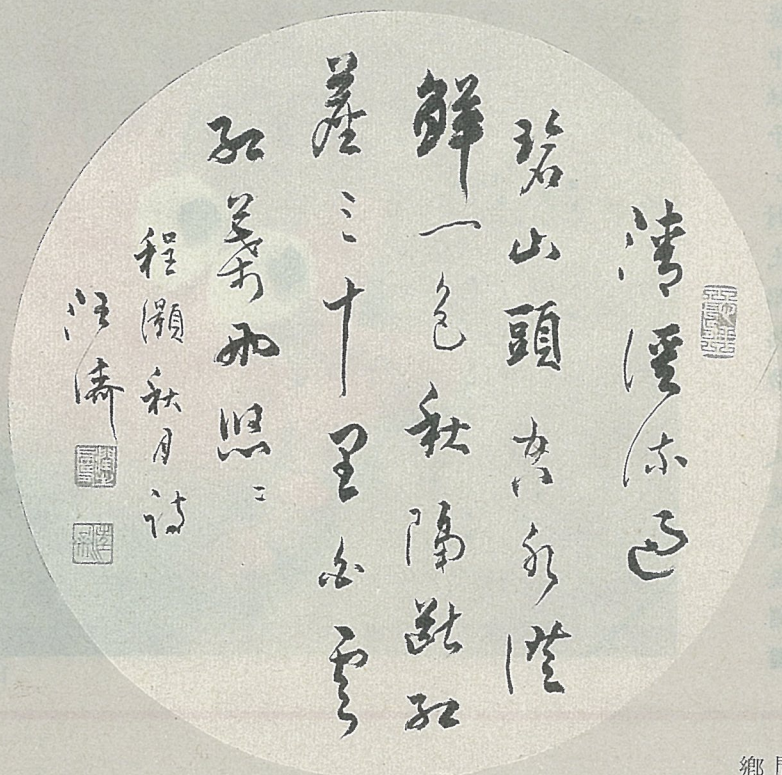 清溪流過
碧山頭空水澄
鮮一色秋隔斷紅
塵三十里白雲
紅葉兩悠〻
程灝秋月詩
汪濤
鄉